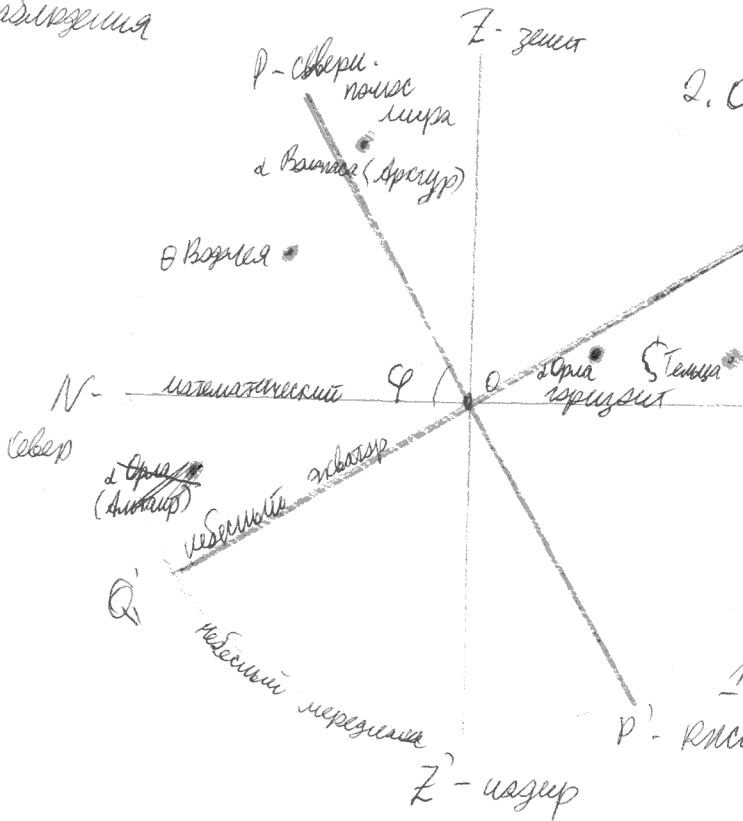 Z - зенит
P - северн.
полюс
мира
2. С
α Волопаса (Арктур)
θ Водолея
N -
математический
φ
O
α Орла
ζ Тельца
горизонт
север
α Орла
(Альтаир)
небесный экватор
Q'
небесный меридиан
P' -
Z' - надир